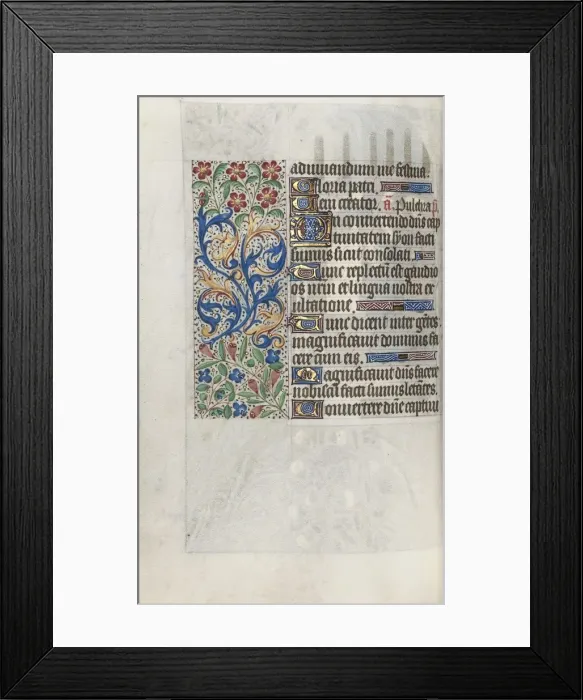 adiuuandum me festina.
Gloria patri.
Mem creator. a. Pulchra p
In conuertendo dns cap
tiuitatem syon facti
sumus sicut consolati.
Tunc repletum est gaudio
os nrm et lingua nostra ex
ultatione.
Tunc dicent inter getes
magnificauit dominus fa
cere cum eis.
Magnificauit dns facere
nobiscū facti sumus letātes.
Conuertere dne captiui